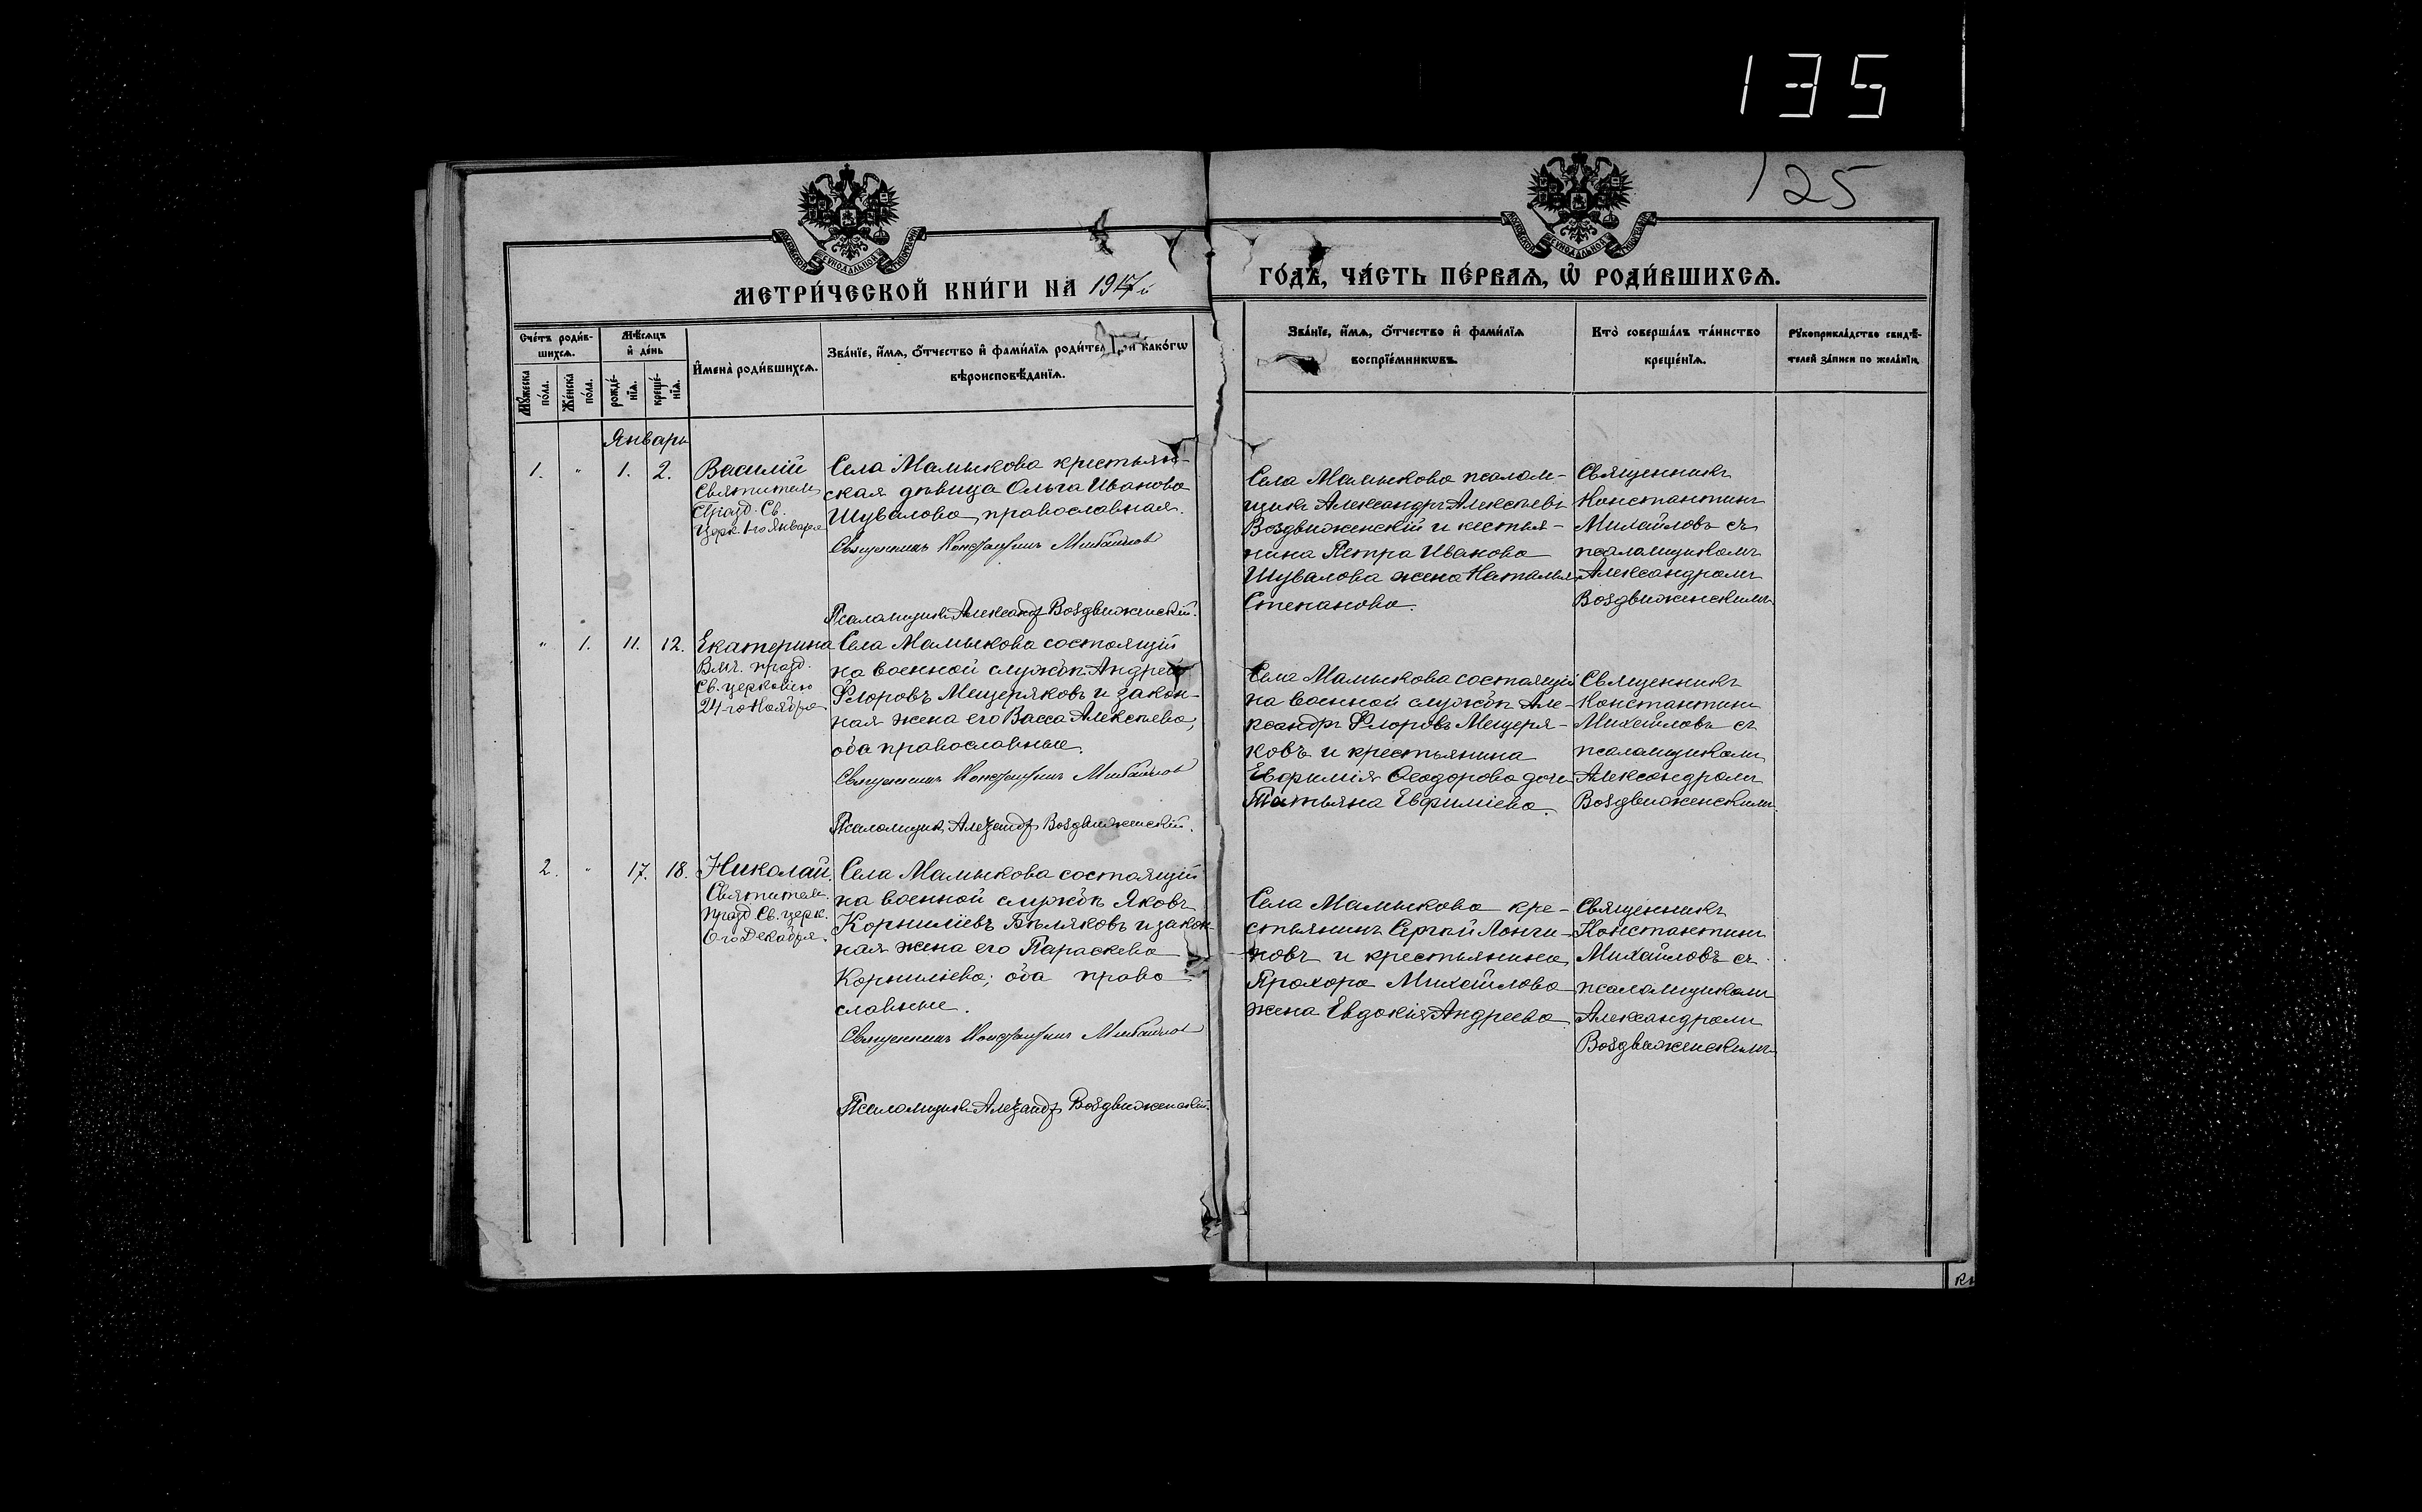 135
125
МОСКОВСКОЙ СѴНОДАЛЬНОЙ ТИПОГРАФІИ
МОСКОВСКОЙ СѴНОДАЛЬНОЙ ТИПОГРАФІИ
МЕТРИ́ЧЕСКОЙ КНИ́ГИ НА 1917й
ГО́ДЪ, ЧА́СТЬ ПЕ́РВАѦ, Ѽ РОДИ́ВШИХСѦ.
Сче́тъ роди́в-
шихсѧ.
Мꙋ́жеска
по́ла.
Же́нска
по́ла.
Мѣ́сѧцъ
и҆ де́нь
рожде́-
нїѧ.
креще́-
нїѧ.
И҆мена̀ роди́вшихсѧ.
Зва́нїе, и҆́мѧ, ѻ҆́тчество и҆ фами́лїѧ роди́тел и како́гѡ
вѣроисповѣ́данїѧ.
Зва́нїе, и҆́мѧ, ѻ҆́тчество и҆ фами́лїѧ
воспрїе́мникѡвъ.
Кто̀ соверша́лъ та́инство
креще́нїѧ.
Рꙋкоприкла́дство свидѣ́-
телей за́писи по жела́нїю.
Январь
1. " 1. 2.
Василій
Святителя
Св.
Церк. 1-го Января
Села Мамыкова крестьян-
ская дѣвица Ольга Иванова
Шувалова, православная.
Священникъ Константинъ Михайлов
Псаломщикъ Александр Воздвиженскій.
Села Мамыкова псалом-
щикъ Александръ Алексѣевъ
Воздвиженскій и кестья-
нина Петра Иванова
Шувалова жена Наталья
Степанова.
Священникъ
Константинъ
Михайловъ съ
псаломщикомъ
Александромъ
Воздвиженскимъ
" 1. 11. 12.
Екатерина
Вмч. празд.
Св. церковію
24-го Ноября
Села Мамыкова состоящій
на военной службѣ Андрей
Флоровъ Мещеряковъ и закон-
ная жена его Васса Алексѣева,
оба православные.
Священникъ Константинъ Михайлов
Псаломщик Александр Воздвиженскій.
Села Мамыкова состоящій
на военной службѣ Але-
ксандръ Флоровъ Мещеря-
ковъ и крестьянина
Евфимія Ѳеодорова дочь
Татьяна Евфиміева.
Священникъ
Константинъ
Михайловъ съ
псаломщикомъ
Александромъ
Воздвиженскимъ
2. " 17. 18.
Николай.
Святителя
празд Св. церк.
6 го Декабря.
Села Мамыкова состоящій
на военной службѣ Яковъ
Корниліевъ Бѣляковъ и закон-
ная жена его Параскева
Корниліева; оба право
славные.
Священникъ Константинъ Михайлов
Псаломщикъ Александр Воздвиженскій.
Села Мамыкова кре-
стьянинъ Сергѣй Лонги-
новъ и крестьянина
Прохора Михайлова
жена Евдокія Андреева
Священникъ
Константинъ
Михайловъ съ
псаломщикомъ
Александромъ
Воздвиженскимъ